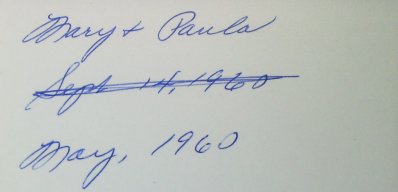 Mary + Paula
Sept 14, 1960
May, 1960